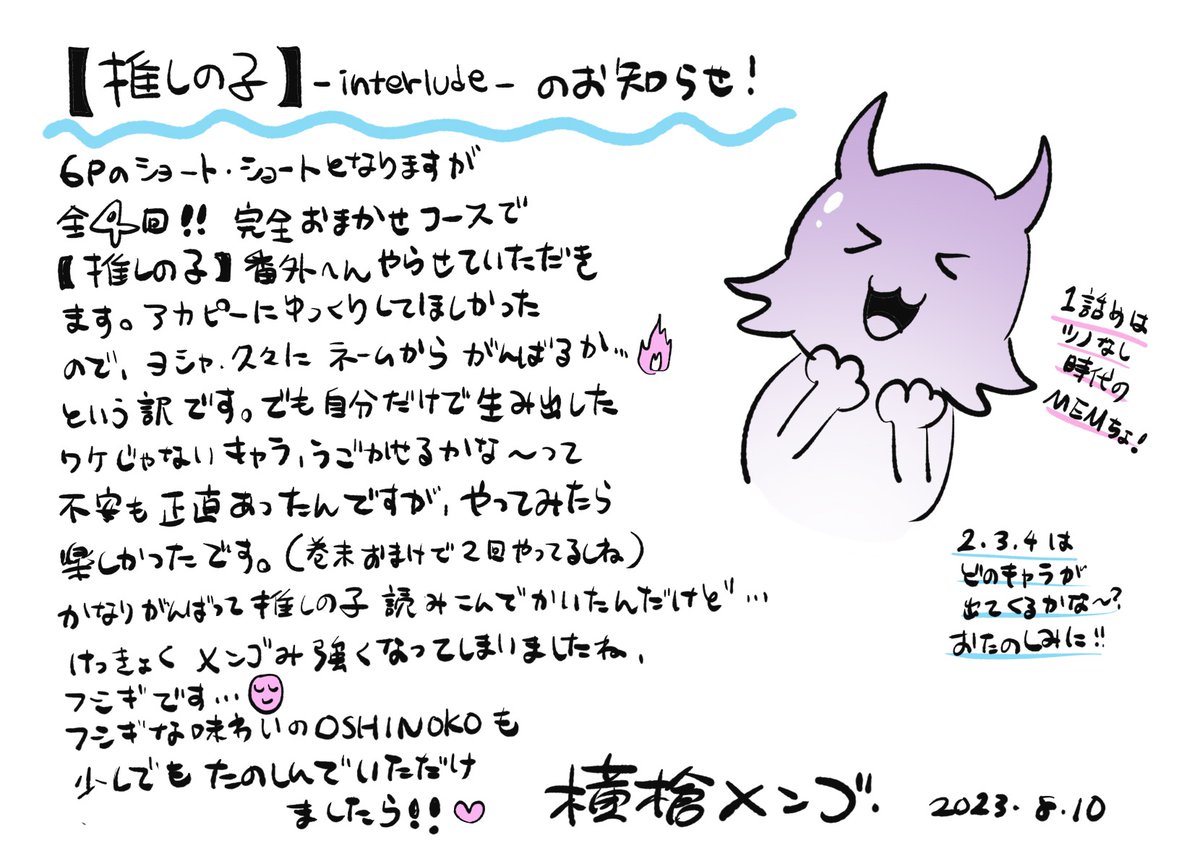 【推しの子】-interlude-のお知らせ!
6Pのショート・ショートとなりますが
全4回!! 完全おまかせコースで
【推しの子】番外へんやらせていただき
ます。アカピーにゆっくりしてほしかった
ので、ヨシャ、久々にネームからがんばるか…
という訳です。でも自分だけで生み出した
ワケじゃないキャラ、うごかせるかな〜って
不安も正直あったんですが、やってみたら
楽しかったです。(巻末おまけで2回やってるしね)
かなりがんばって推しの子読みこんでかいたんだけど…
けっきょくメンゴみ強くなってしまいましたね、
フシギです…
フシギな味わいのOSHINOKOも
少しでもたのしんでいただけ
ましたら!!
横槍メンゴ.
2023.8.10
1話めは
ツノなし
時代の
MEMちょ!
2.3.4は
どのキャラが
出てくるかな〜?
おたのしみに!!